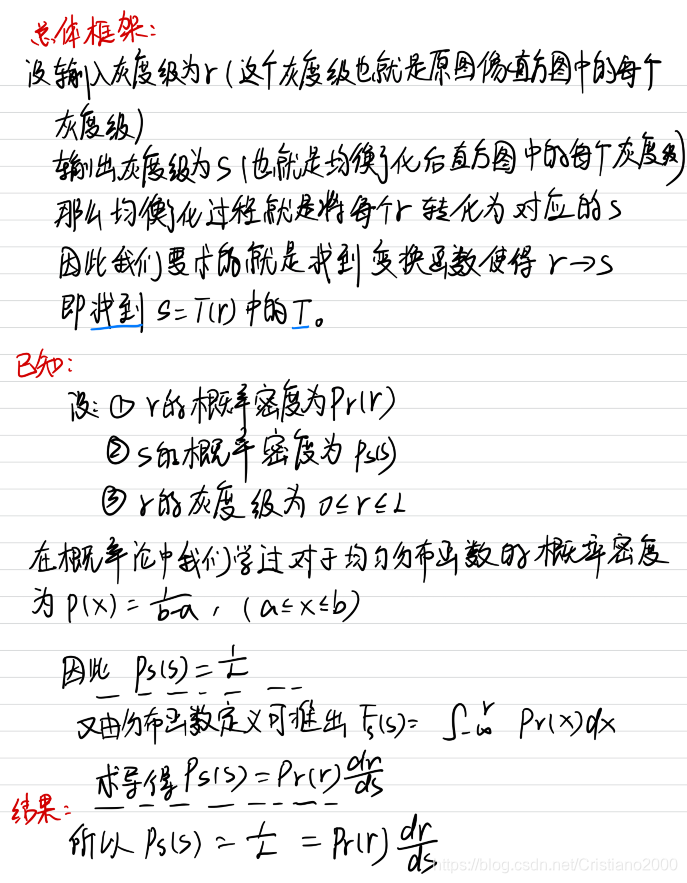 总体框架:
设输入灰度级为r(这个灰度级也就是原图像直方图中的每个
灰度级)
输出灰度级为S(也就是均衡化后直方图中的每个灰度级)
那么均衡化过程就是将每个r转化为对应的S
因此我们要求的就是找到变换函数使得 r→s
即找到 S=T(r)中的T。
已知:
设:① r的概率密度为Pr(r)
② S的概率密度为 Ps(s)
③ r的灰度级为 0≤r≤L
在概率论中我们学过对于均匀分布函数的概率密度
为 P(x) = 1/b-a , (a≤x≤b)
因此 Ps(s) = 1/L
又由分布函数定义可推出 Fs(s)= ∫-∞^r Pr(x)dx
求导得 Ps(s) = Pr(r) dr/ds
结果:
所以 Ps(s) = 1/L = Pr(r) dr/ds
https://blog.csdn.net/Cristiano2000